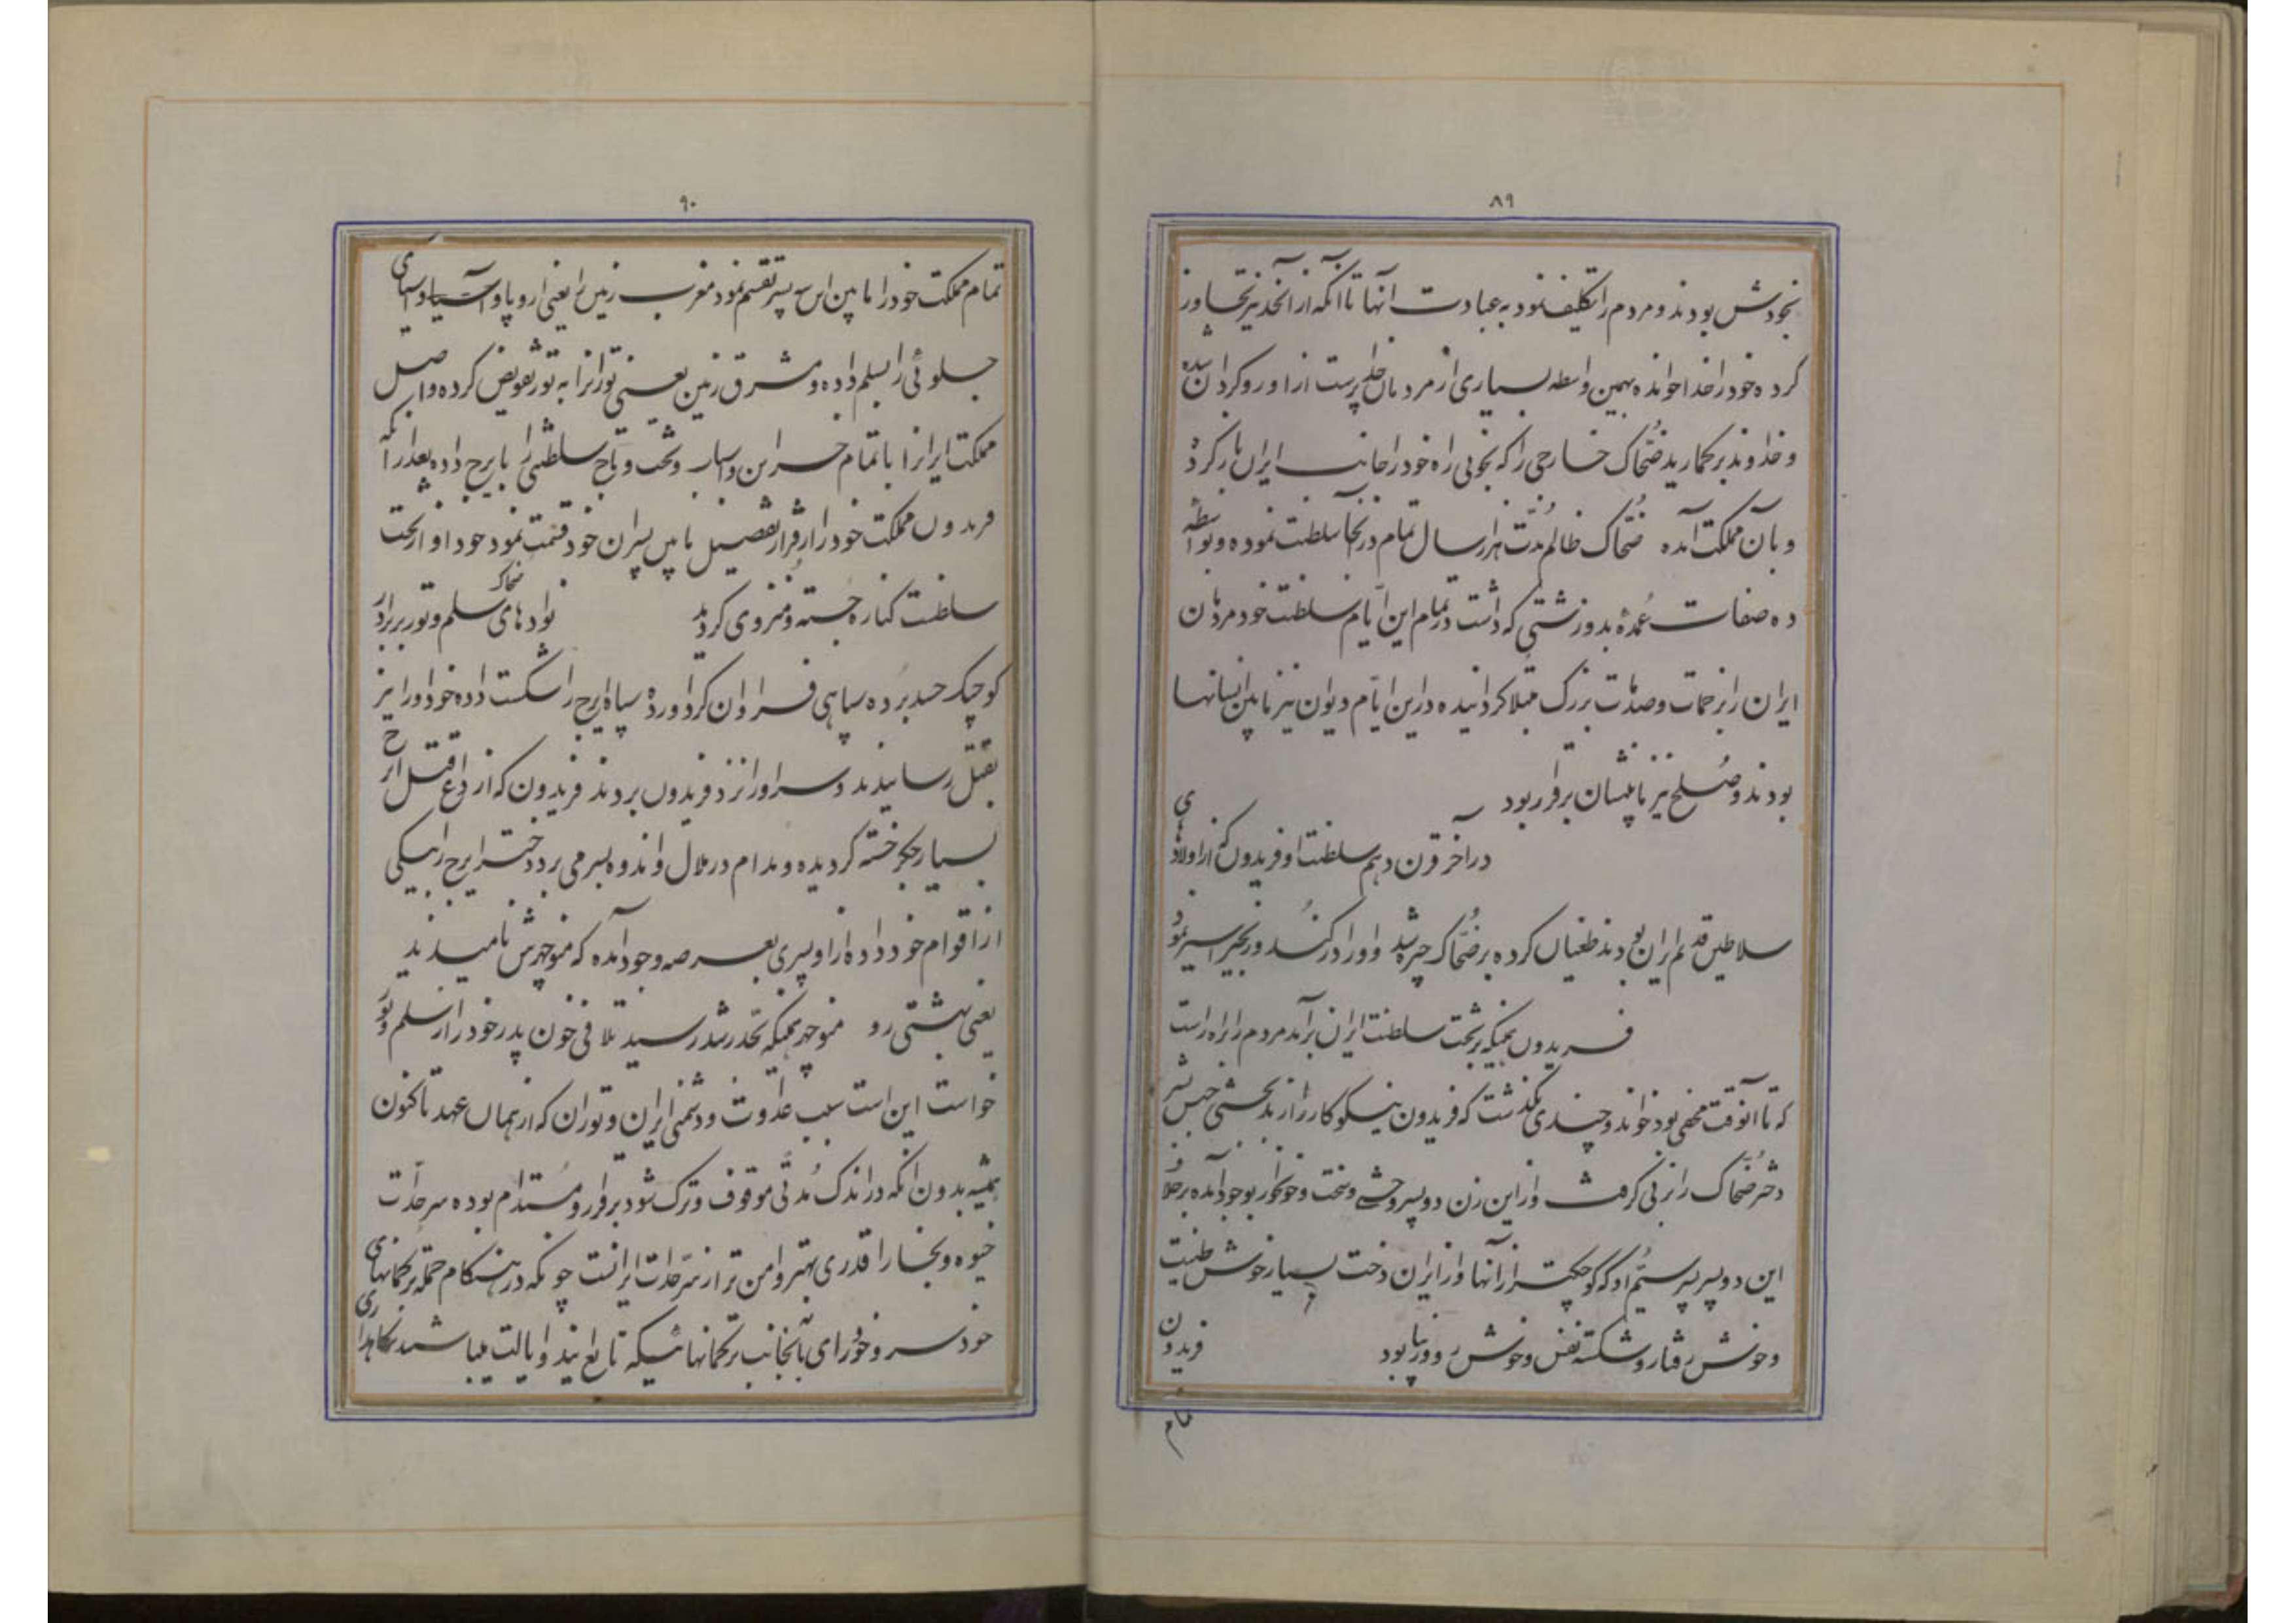 ۸۹
بخودش بودند و مردم را تکلیف نمود به عبادت آنها تا آنکه از آنحد نیز تجاوز
کرده خود را خدا خوانده بهمین واسطه بسیاری از مردمان خدا پرست از او روگردان شده
و خداوند برگمارید ضحاک خارجی را که بخوبی راه خود را جانب ایران باز کرد
و بآن مملکت آمده ضحاک ظالم مدت هزار سال تمام در آنجا سلطنت نموده و بواسطه
ده صفات عمدهٔ بد و زشتی که داشت در تمام این ایام سلطنت خود مردمان
ایران را بزحمات و صدمات بزرگ مبتلا گردانیده در این ایام دیوان نیز مابین انسانها
بودند و صلح نیز مابینشان برقرار بود
در آخر قرن دهم سلطنت او فریدون که از اولادهای
سلاطین قدیم ایران بودند طغیان کرده بر ضحاک چیره شد و او را در کمند و زنجیر اسیر نمود
فریدون همینکه بتخت سلطنت ایران برآمد مردم را براه راست
که تا آنوقت مخفی بود خواند و چندی نگذشت که فریدون نیکو کار را از بدبختی جنس بشر
دختر ضحاک را بزنی گرفت و از این زن دو پسر وحشی و سخت و خونخوار بوجود آمده برخلاف
این دو پسر پسر سیم او که کوچکتر از آنها و از ایران دخت بسیار خوش طینت
و خوش رفتار و شکسته نفس و خوش رو و زیبا بود فریدون
تمام
۹۰
تمام مملکت خود را مابین این سه پسر تقسیم نمود مغرب زمین را یعنی اروپا و آسیا و آسیای
جلوئی را بسلم داده و مشرق زمین یعنی توران را به تور تفویض کرده و اصل
مملکت ایران را با تمام خزاین و اسباب و تخت و تاج سلطنتی را بایرج داده بعد از آنکه
فریدون مملکت خود را از قرار تفصیل مابین پسران خود قسمت نمود خود او از تخت
سلطنت کناره جسته و منزوی گردید نواده‌های ضحاک سلم و تور بر برادر
کوچک حسد برده سپاهی فراوان گرد آورده سپاه ایرج را شکست داده خود او را نیز
بقتل رسانیدند و سر او را نزد فریدون بردند فریدون که از وقوع قتل ایرج
بسیار جگر خسته گردیده و مدام در ملال و اندوه بسر می‌برد دختر ایرج را بیکی
از اقوام خود داده از او پسری بعرصه وجود آمده که منوچهرش نامیدند
یعنی بهشتی رو منوچهر همینکه بحد رشد رسید تلافی خون پدر خود را از سلم و تور
خواست این است سبب عداوت و دشمنی ایران و توران که از همان عهد تا کنون
همیشه بدون آنکه در اندک مدتی موقوف و ترک شود برقرار و مستدام بوده سرحدات
خیوه و بخارا قدری بهتر و امن تر از سرحدات ایرانست چونکه در هنگام حمله ترکمانهای
خودسر و خودرای بآنجانب ترکمانهائیکه تابع ایندو ایالت میباشند نگاهداری